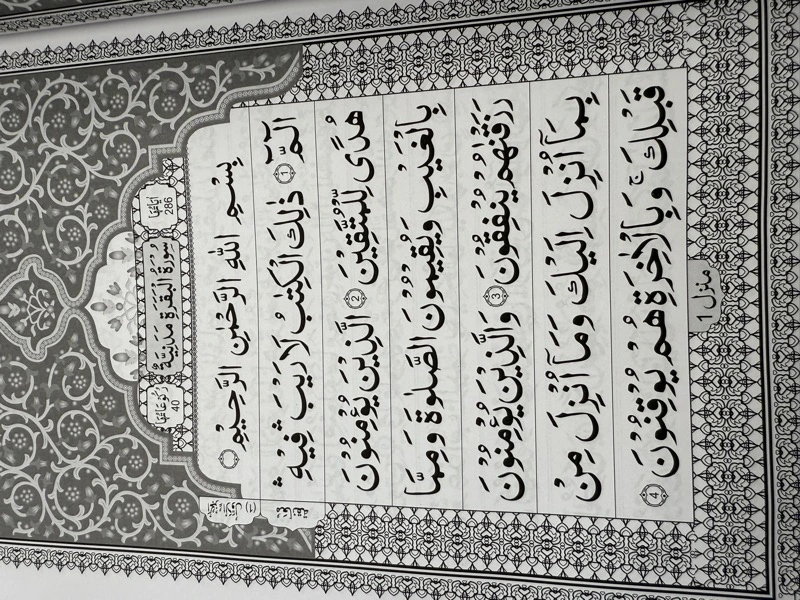 سُوْرَةُ الْبَقَرَةِ مَدَنِيَّةٌ
اٰيَاتُهَا 286
رُكُوْعَاتُهَا 40
بِسْمِ اللّٰهِ الرَّحْمٰنِ الرَّحِيْمِ
الٓمّٓ ۝1 ذٰلِكَ الْكِتٰبُ لَا رَيْبَ ۛ فِيْهِ ۛ
هُدًى لِّلْمُتَّقِيْنَ ۝2 الَّذِيْنَ يُؤْمِنُوْنَ
بِالْغَيْبِ وَيُقِيْمُوْنَ الصَّلٰوةَ وَمِمَّا
رَزَقْنٰهُمْ يُنْفِقُوْنَ ۝3 وَالَّذِيْنَ يُؤْمِنُوْنَ
بِمَآ اُنْزِلَ اِلَيْكَ وَمَآ اُنْزِلَ مِنْ
قَبْلِكَ ۚ وَبِالْاٰخِرَةِ هُمْ يُوْقِنُوْنَ ۝4
منزل 1